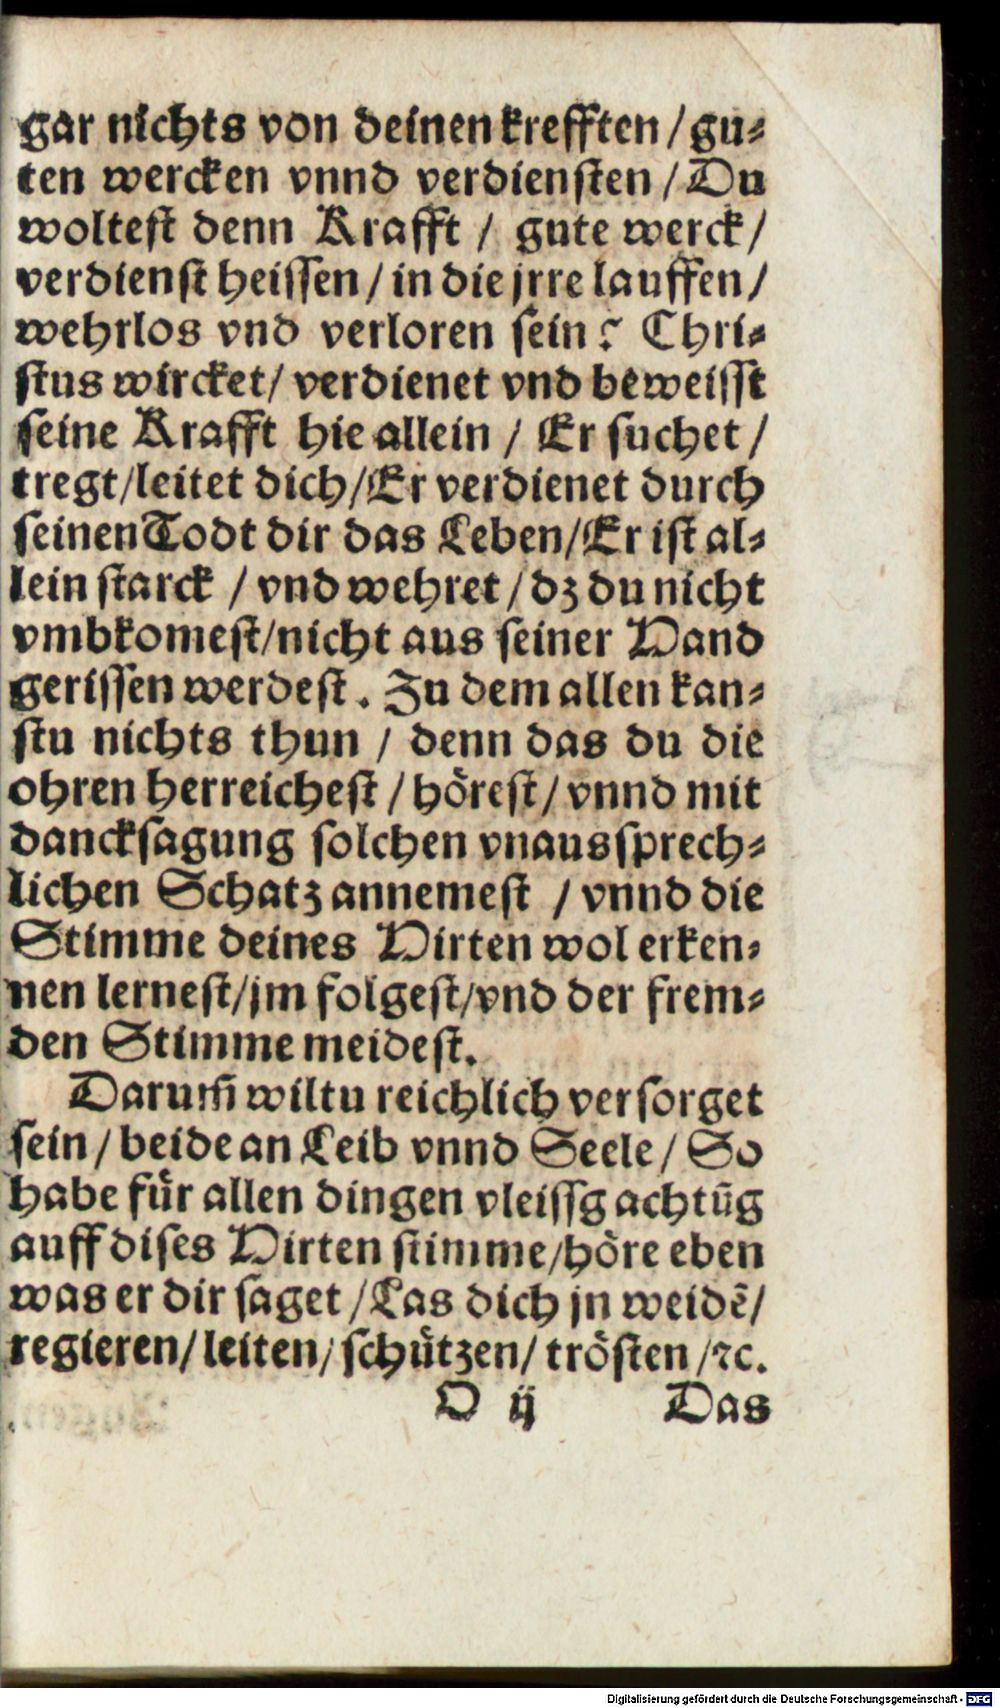 gar nichts von deinen krefften / gu⸗
ten wercken vnnd verdiensten / Du
woltest denn Krafft / gute werck /
verdienst heissen / in die jrre lauffen /
wehrlos vnd verloren sein? Chri⸗
stus wircket / verdienet vnd beweisst
seine Krafft hie allein / Er suchet /
tregt / leitet dich / Er verdienet durch
seinen Todt dir das Leben / Er ist al⸗
lein starck / vnd wehret / dz du nicht
vmbkomest / nicht aus seiner Hand
gerissen werdest. Zu dem allen kan⸗
stu nichts thun / denn das du die
ohren herreichest / hörest / vnnd mit
dancksagung solchen vnaussprech⸗
lichen Schatz annemest / vnnd die
Stimme deines Hirten wol erken⸗
nen lernest / jm folgest / vnd der frem⸗
den Stimme meidest.
Darum̃ wiltu reichlich versorget
sein / beide an Leib vnnd Seele / So
habe für allen dingen vleissg achtũg
auff dises Hirten stimme / höre eben
was er dir saget / Las dich jn weidẽ /
regieren / leiten / schützen / trösten / ꝛc.
D ij Das
Digitalisierung gefördert durch die Deutsche Forschungsgemeinschaft - DFG